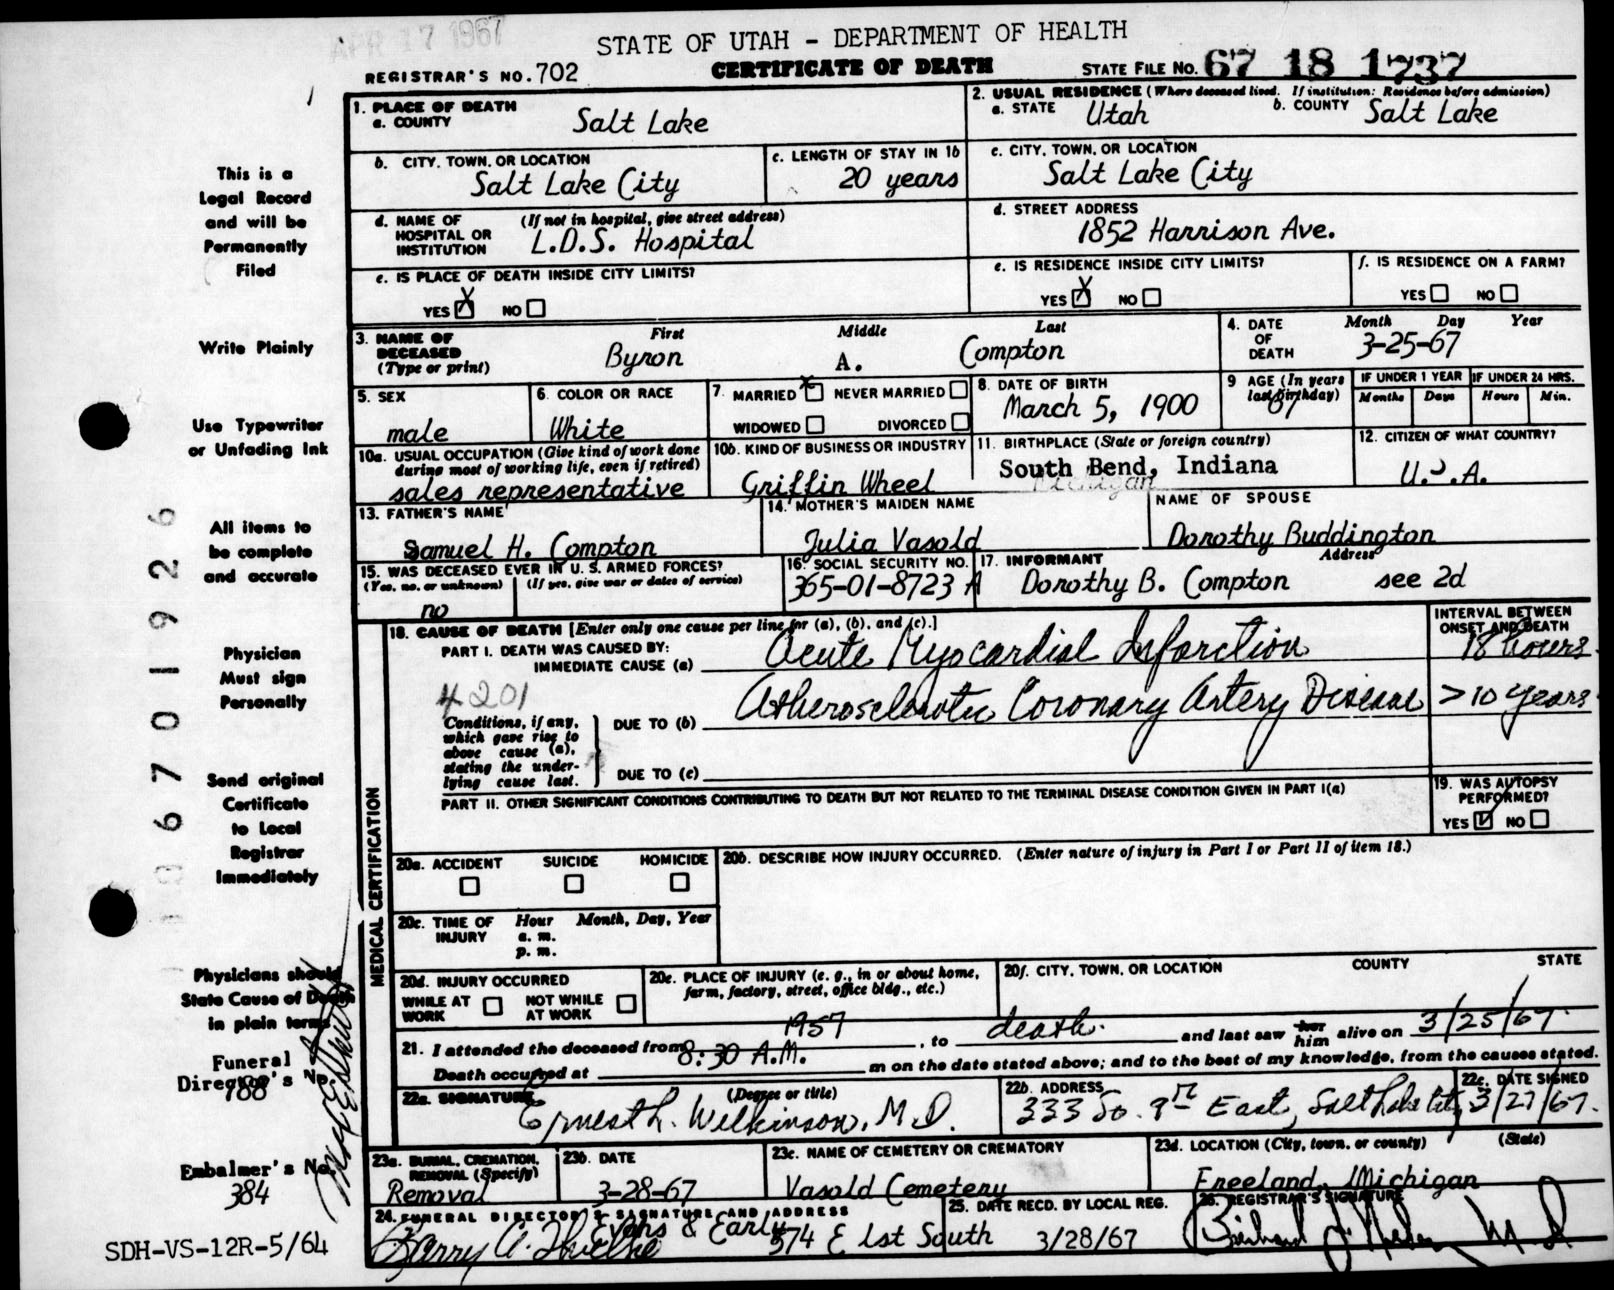 APR 17 1967
STATE OF UTAH - DEPARTMENT OF HEALTH
REGISTRAR'S NO. 702
CERTIFICATE OF DEATH
STATE FILE NO. 67 18 1737
1. PLACE OF DEATH
a. COUNTY
Salt Lake
2. USUAL RESIDENCE (Where deceased lived. If institution: Residence before admission)
a. STATE Utah b. COUNTY Salt Lake
b. CITY, TOWN, OR LOCATION
Salt Lake City
c. LENGTH OF STAY IN 1b
20 years
c. CITY, TOWN, OR LOCATION
Salt Lake City
d. NAME OF HOSPITAL OR INSTITUTION (If not in hospital, give street address)
L.D.S. Hospital
d. STREET ADDRESS
1852 Harrison Ave.
e. IS PLACE OF DEATH INSIDE CITY LIMITS?
YES X NO
e. IS RESIDENCE INSIDE CITY LIMITS?
YES X NO
f. IS RESIDENCE ON A FARM?
YES NO
3. NAME OF DECEASED (Type or print)
First Middle Last
Byron A. Compton
4. DATE OF DEATH
Month Day Year
3-25-67
5. SEX
male
6. COLOR OR RACE
White
7. MARRIED X NEVER MARRIED
WIDOWED DIVORCED
8. DATE OF BIRTH
March 5, 1900
9 AGE (In years last birthday)
67
IF UNDER 1 YEAR
Months Days
IF UNDER 24 HRS.
Hours Min.
10a. USUAL OCCUPATION (Give kind of work done during most of working life, even if retired)
sales representative
10b. KIND OF BUSINESS OR INDUSTRY
Griffin Wheel
11. BIRTHPLACE (State or foreign country)
South Bend, Indiana
Michigan
12. CITIZEN OF WHAT COUNTRY?
U.S.A.
13. FATHER'S NAME
Samuel H. Compton
14. MOTHER'S MAIDEN NAME
Julia Vasold
NAME OF SPOUSE
Dorothy Buddington
15. WAS DECEASED EVER IN U. S. ARMED FORCES?
(Yes, no, or unknown) (If yes, give war or dates of service)
no
16. SOCIAL SECURITY NO.
365-01-8723 A
17. INFORMANT Address
Dorothy B. Compton see 2d
18. CAUSE OF DEATH [Enter only one cause per line for (a), (b), and (c).]
INTERVAL BETWEEN ONSET AND DEATH
PART I. DEATH WAS CAUSED BY:
IMMEDIATE CAUSE (a) Acute Myocardial Infarction 18 hours
4201
Conditions, if any, which gave rise to above cause (a), stating the underlying cause last.
DUE TO (b) Atherosclerotic Coronary Artery Disease > 10 years
DUE TO (c)
PART II. OTHER SIGNIFICANT CONDITIONS CONTRIBUTING TO DEATH BUT NOT RELATED TO THE TERMINAL DISEASE CONDITION GIVEN IN PART I(a)
19. WAS AUTOPSY PERFORMED?
YES ✓ NO
MEDICAL CERTIFICATION
20a. ACCIDENT SUICIDE HOMICIDE
20b. DESCRIBE HOW INJURY OCCURRED. (Enter nature of injury in Part I or Part II of item 18.)
20c. TIME OF INJURY Hour Month, Day, Year
a. m.
p. m.
20d. INJURY OCCURRED
WHILE AT WORK NOT WHILE AT WORK
20e. PLACE OF INJURY (e. g., in or about home, farm, factory, street, office bldg., etc.)
20f. CITY, TOWN, OR LOCATION COUNTY STATE
21. I attended the deceased from 1957, to death. and last saw her him alive on 3/25/67.
Death occurred at 8:30 A.M. m on the date stated above; and to the best of my knowledge, from the causes stated.
22a. SIGNATURE (Degree or title)
Ernest L. Wilkinson, M.D.
22b. ADDRESS
333 So. 9th East, Salt Lake City
22c. DATE SIGNED
3/27/67.
23a. BURIAL, CREMATION, REMOVAL (Specify)
Removal
23b. DATE
3-28-67
23c. NAME OF CEMETERY OR CREMATORY
Vasold Cemetery
23d. LOCATION (City, town, or county) (State)
Freeland, Michigan
24. FUNERAL DIRECTOR'S SIGNATURE AND ADDRESS
Evans & Early
574 E 1st South
25. DATE RECD. BY LOCAL REG.
3/28/67
26. REGISTRAR'S SIGNATURE
This is a
Legal Record
and will be
Permanently
Filed
Write Plainly
Use Typewriter
or Unfading Ink
All items to
be complete
and accurate
Physician
Must sign
Personally
Send original
Certificate
to Local
Registrar
Immediately
Physicians should
State Cause of Death
in plain terms
Funeral
Director's No.
788
Embalmer's No.
384
SDH-VS-12R-5/64
006701926